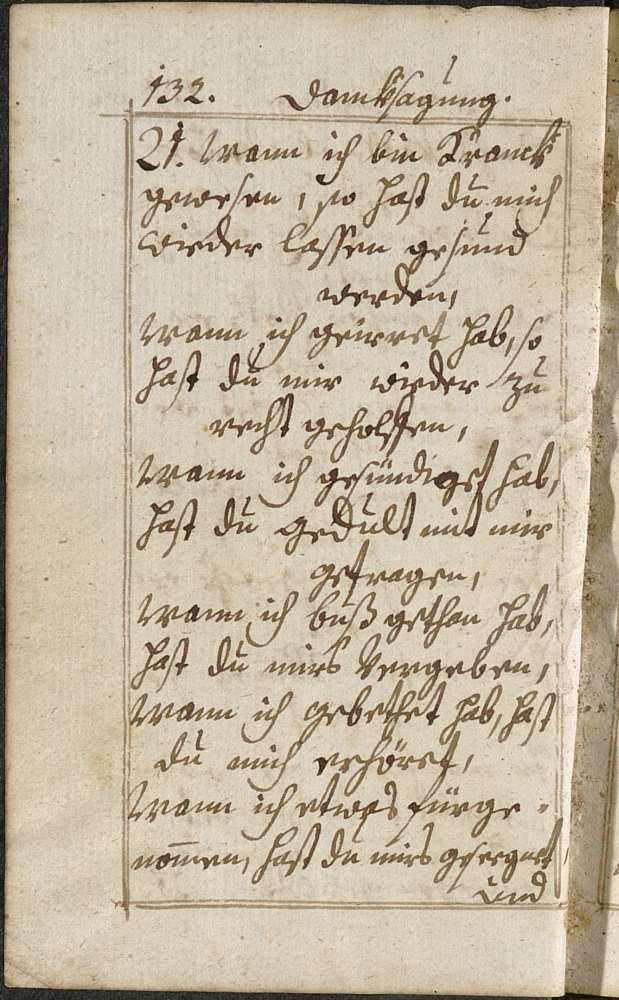 132. Dancksagung.
21. Wann ich bin Kranck
gewesen, so hast du mich
wieder lassen gesund
werden,
Wann ich geirret hab, so
hast du mir wieder zu
recht geholffen,
Wann ich gesündiget hab,
hast du gedult mit mir
getragen,
Wann ich buß gethan hab,
hast du mirs Vergeben,
Wann ich gebettet hab, hast
du mich erhöret,
Wann ich etwas fürge-
nom̅en, hast du mirs gesegnet,
und